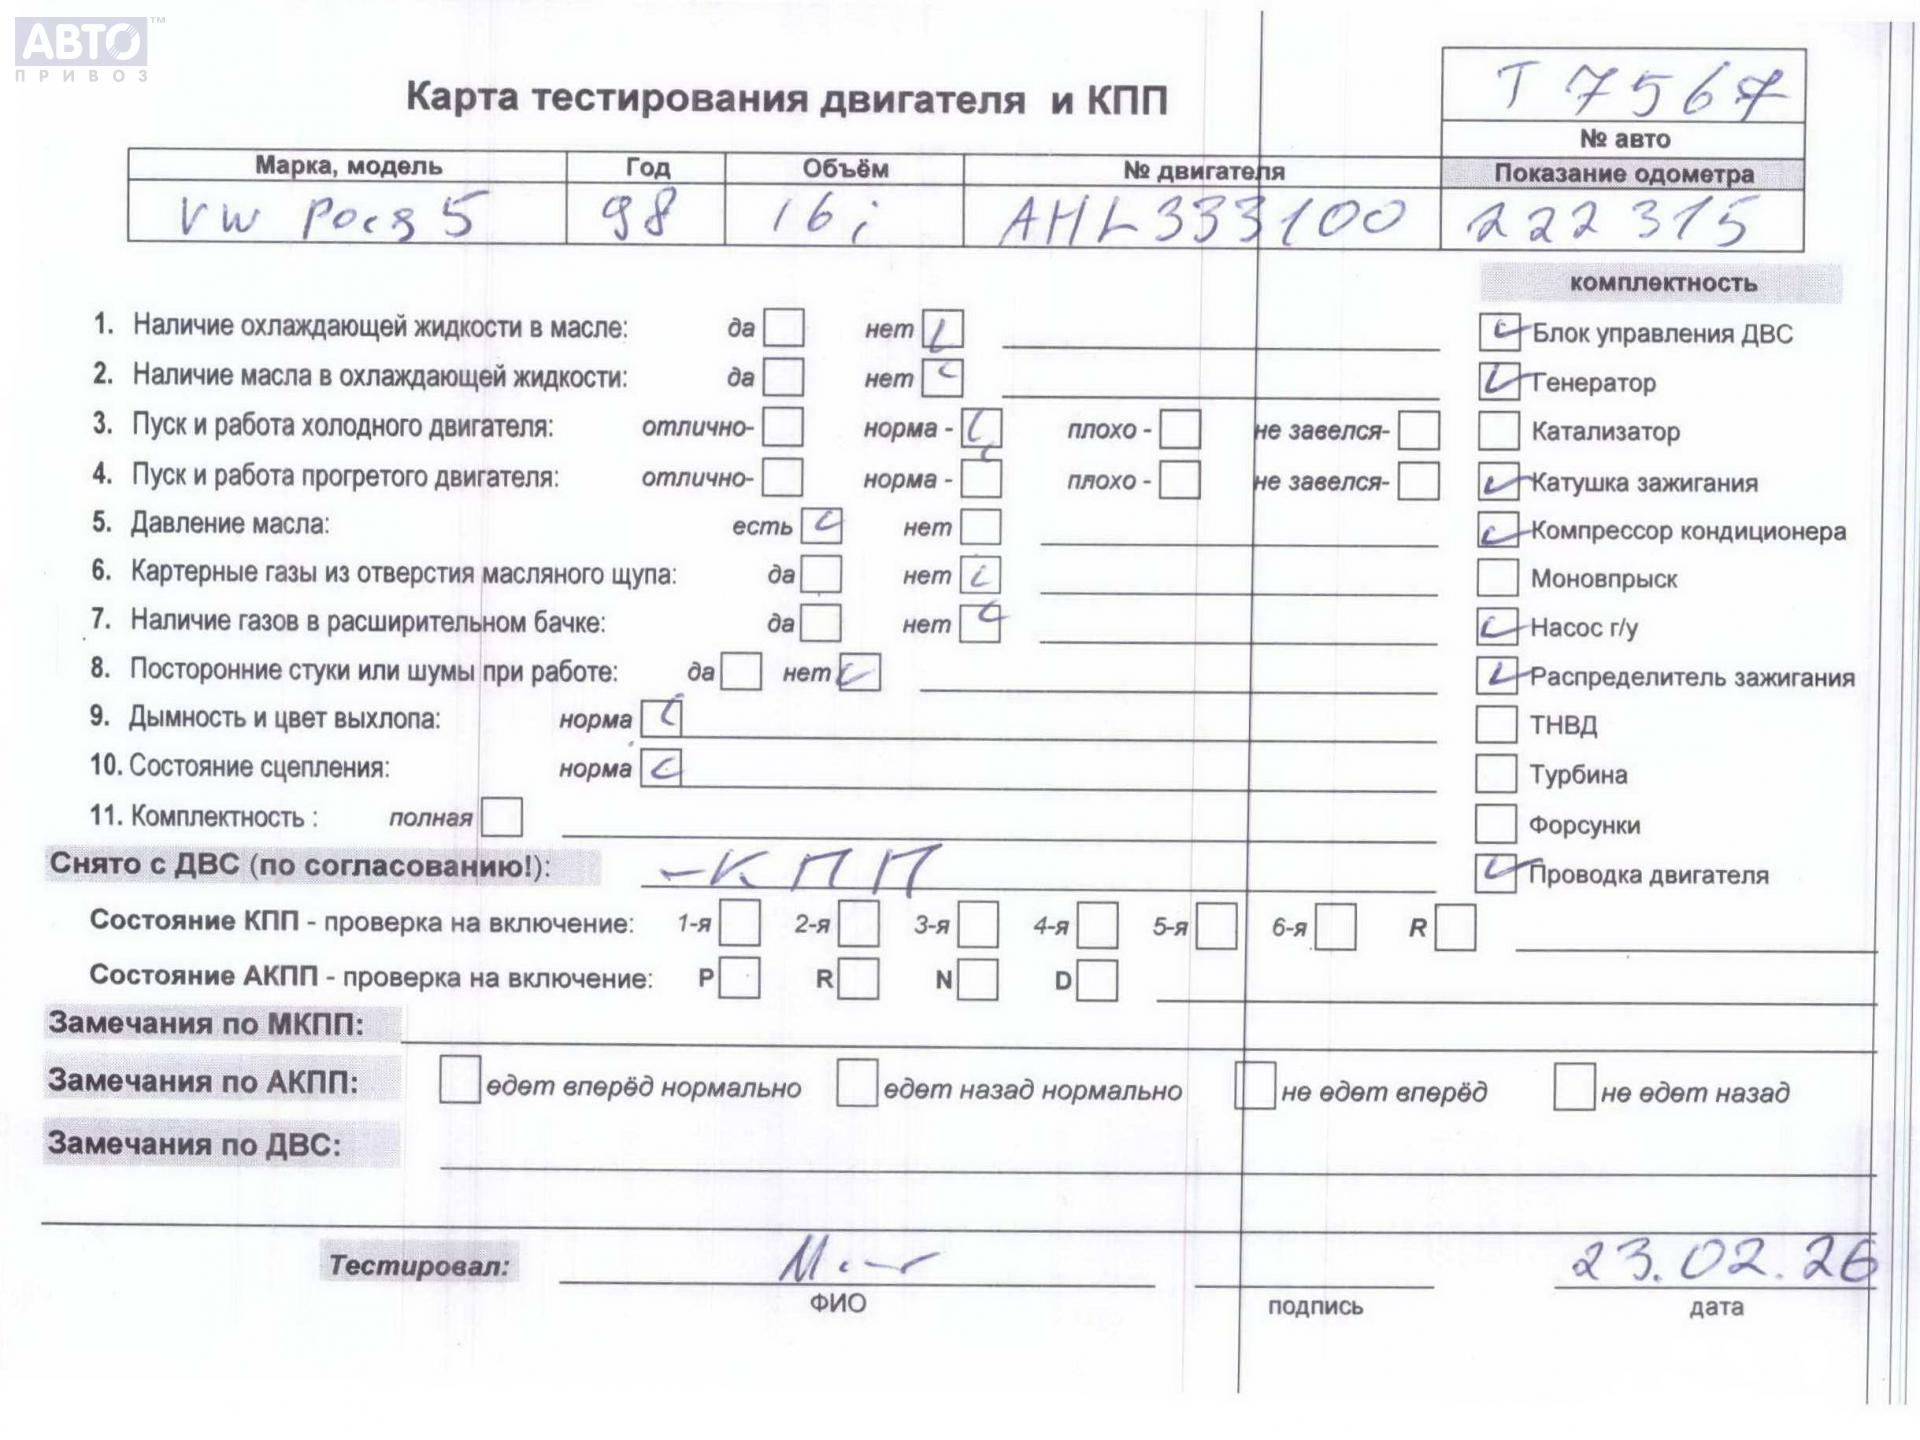 АВТО™
ПРИВОЗ
Карта тестирования двигателя и КПП
Т 7567
№ авто
Марка, модель Год Объём № двигателя Показание одометра
VW 98 16i AHL333100 222315
комплектность
1. Наличие охлаждающей жидкости в масле: да нет
Блок управления ДВС
2. Наличие масла в охлаждающей жидкости: да нет
Генератор
3. Пуск и работа холодного двигателя: отлично- норма - плохо - не завелся-
Катализатор
4. Пуск и работа прогретого двигателя: отлично- норма - плохо - не завелся-
Катушка зажигания
5. Давление масла: есть нет
Компрессор кондиционера
6. Картерные газы из отверстия масляного щупа: да нет
Моновпрыск
7. Наличие газов в расширительном бачке: да нет
Насос г/у
8. Посторонние стуки или шумы при работе: да нет
Распределитель зажигания
9. Дымность и цвет выхлопа: норма
ТНВД
10. Состояние сцепления: норма
Турбина
11. Комплектность : полная
Форсунки
Снято с ДВС (по согласованию!): -КПП
Проводка двигателя
Состояние КПП - проверка на включение: 1-я 2-я 3-я 4-я 5-я 6-я R
Состояние АКПП - проверка на включение: P R N D
Замечания по МКПП:
Замечания по АКПП: едет вперёд нормально едет назад нормально не едет вперёд не едет назад
Замечания по ДВС:
Тестировал: 23.02.26
ФИО подпись дата